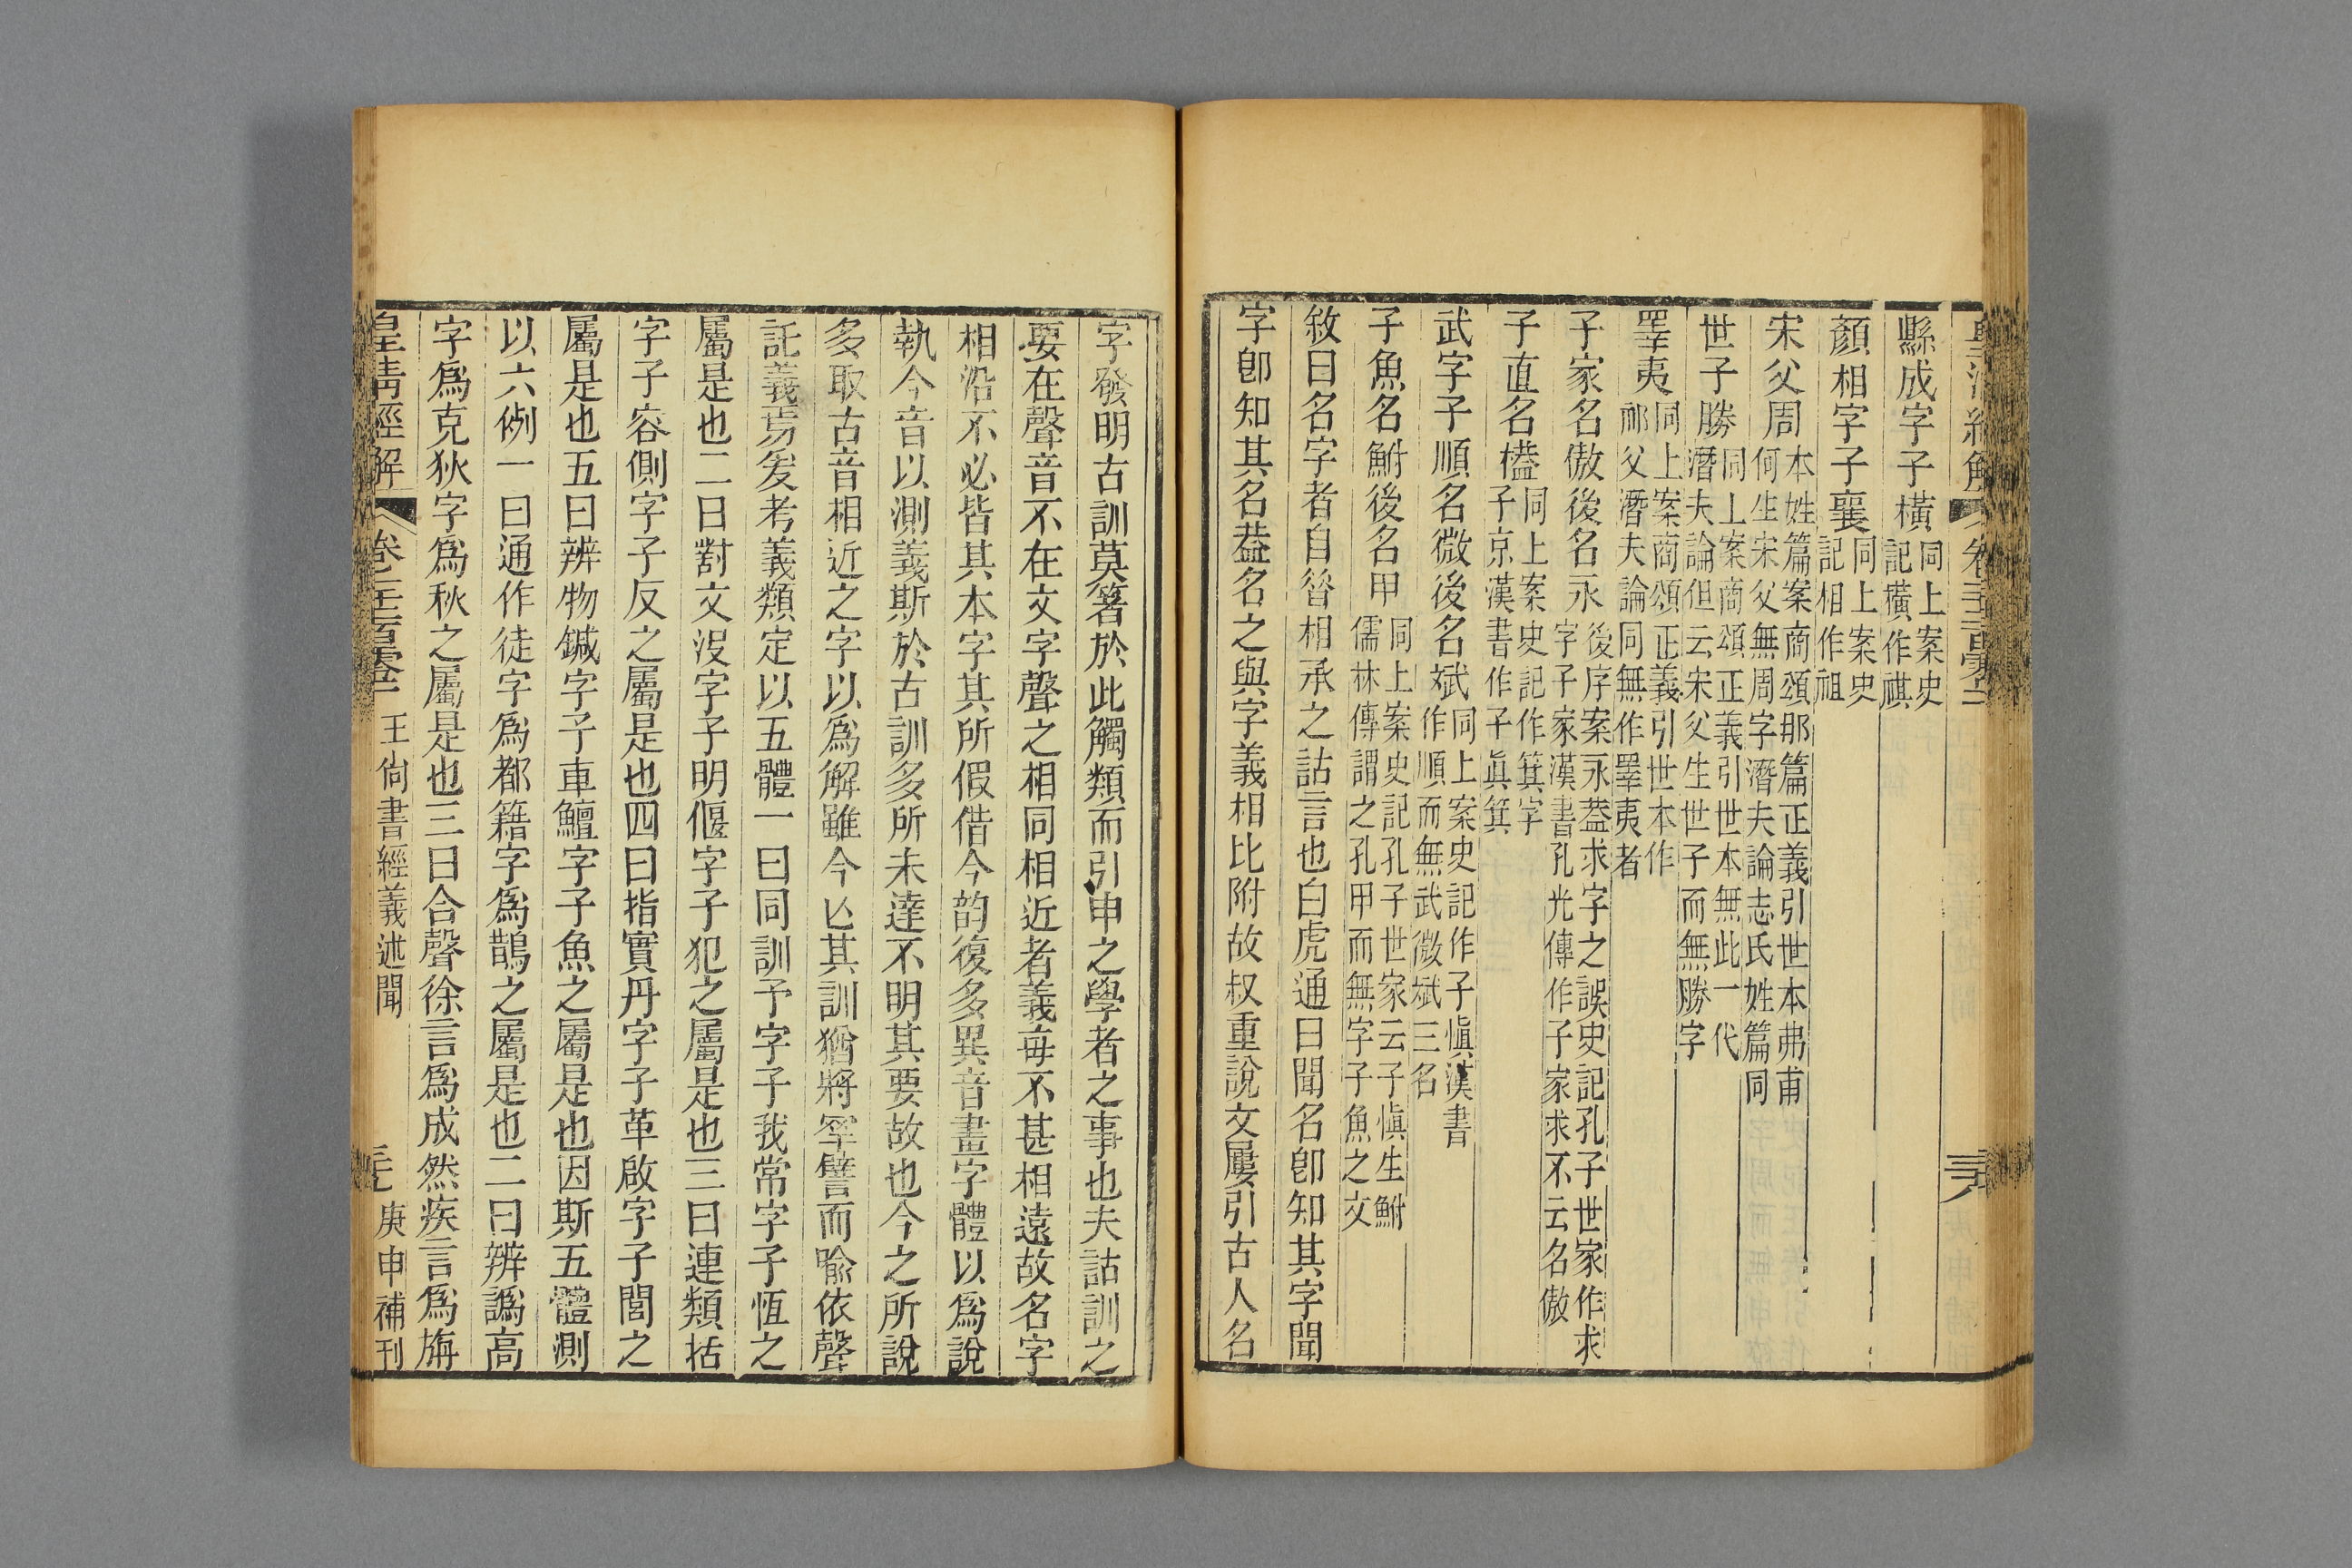 皇清經解
卷一千二百零二
三十八
縣成字子橫同上案史
記橫作祺
顏相字子襄同上案史
記相作祖
宋父周本姓篇案商頌那篇正義引世本弗甫
何生宋父無周字潛夫論志氏姓篇同
世子勝同上案商頌正義引世本無此一代
潛夫論但云宋父生世子而無勝字
睪夷同上案商頌正義引世本作
祁父潛夫論同無作睪夷者
子家名傲後名永後序案永葢求字之誤史記孔子世家作求
字子家漢書孔光傳作子家求不云名傲
子直名榼同上案史記作箕字
子京漢書作子眞箕
武字子順名微後名斌同上案史記作子愼漢書
作順而無武微斌三名
子魚名鮒後名甲同上案史記孔子世家云子愼生鮒
儒林傳謂之孔甲而無字子魚之文
敘曰名字者自昝相承之詁言也白虎通曰聞名卽知其字聞
字卽知其名葢名之與字義相比附故叔重說文屢引古人名
字發明古訓莫箸於此觸類而引申之學者之事也夫詁訓之
要在聲音不在文字聲之相同相近者義每不甚相遠故名字
相沿不必皆其本字其所假借今韵復多異音畫字體以爲說
執今音以測義斯於古訓多所未達不明其要故也今之所說
多取古音相近之字以爲解雖今亾其訓猶將罕譬而喻依聲
託義焉爰考義類定以五體一曰同訓予字子我常字子恆之
屬是也二曰對文沒字子明偃字子犯之屬是也三曰連類括
字子容側字子反之屬是也四曰指實丹字子革啟字子閭之
屬是也五曰辨物鍼字子車鱣字子魚之屬是也因斯五體測
以六例一曰通作徒字爲都籍字爲鵲之屬是也二曰辨譌高
字爲克狄字爲秋之屬是也三曰合聲徐言爲成然疾言爲旃
皇清經解
卷一千二百零二
王尙書經義述聞
三十八
庚申補刊